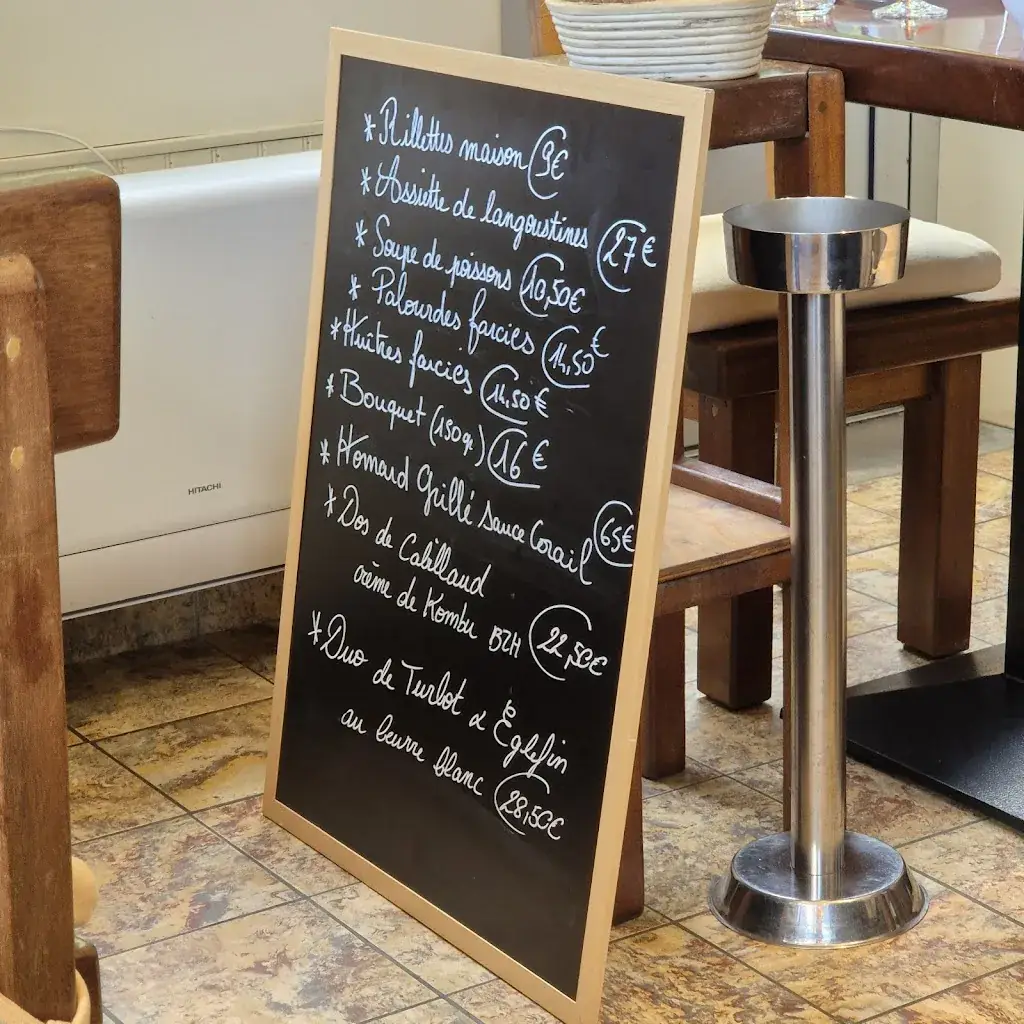 * Rillettes maison 9€
* Assiette de langoustines 27€
* Soupe de poissons 10,50€
* Palourdes farcies 14,50€
* Huîtres farcies 14,50€
* Bouquet (150gr) 16€
* Homard Grillé sauce Corail 65€
* Dos de Cabillaud
crème de Kombu BZH 22,50€
* Duo de Turbot &
Eglefin
au beurre blanc 28,50€
HITACHI